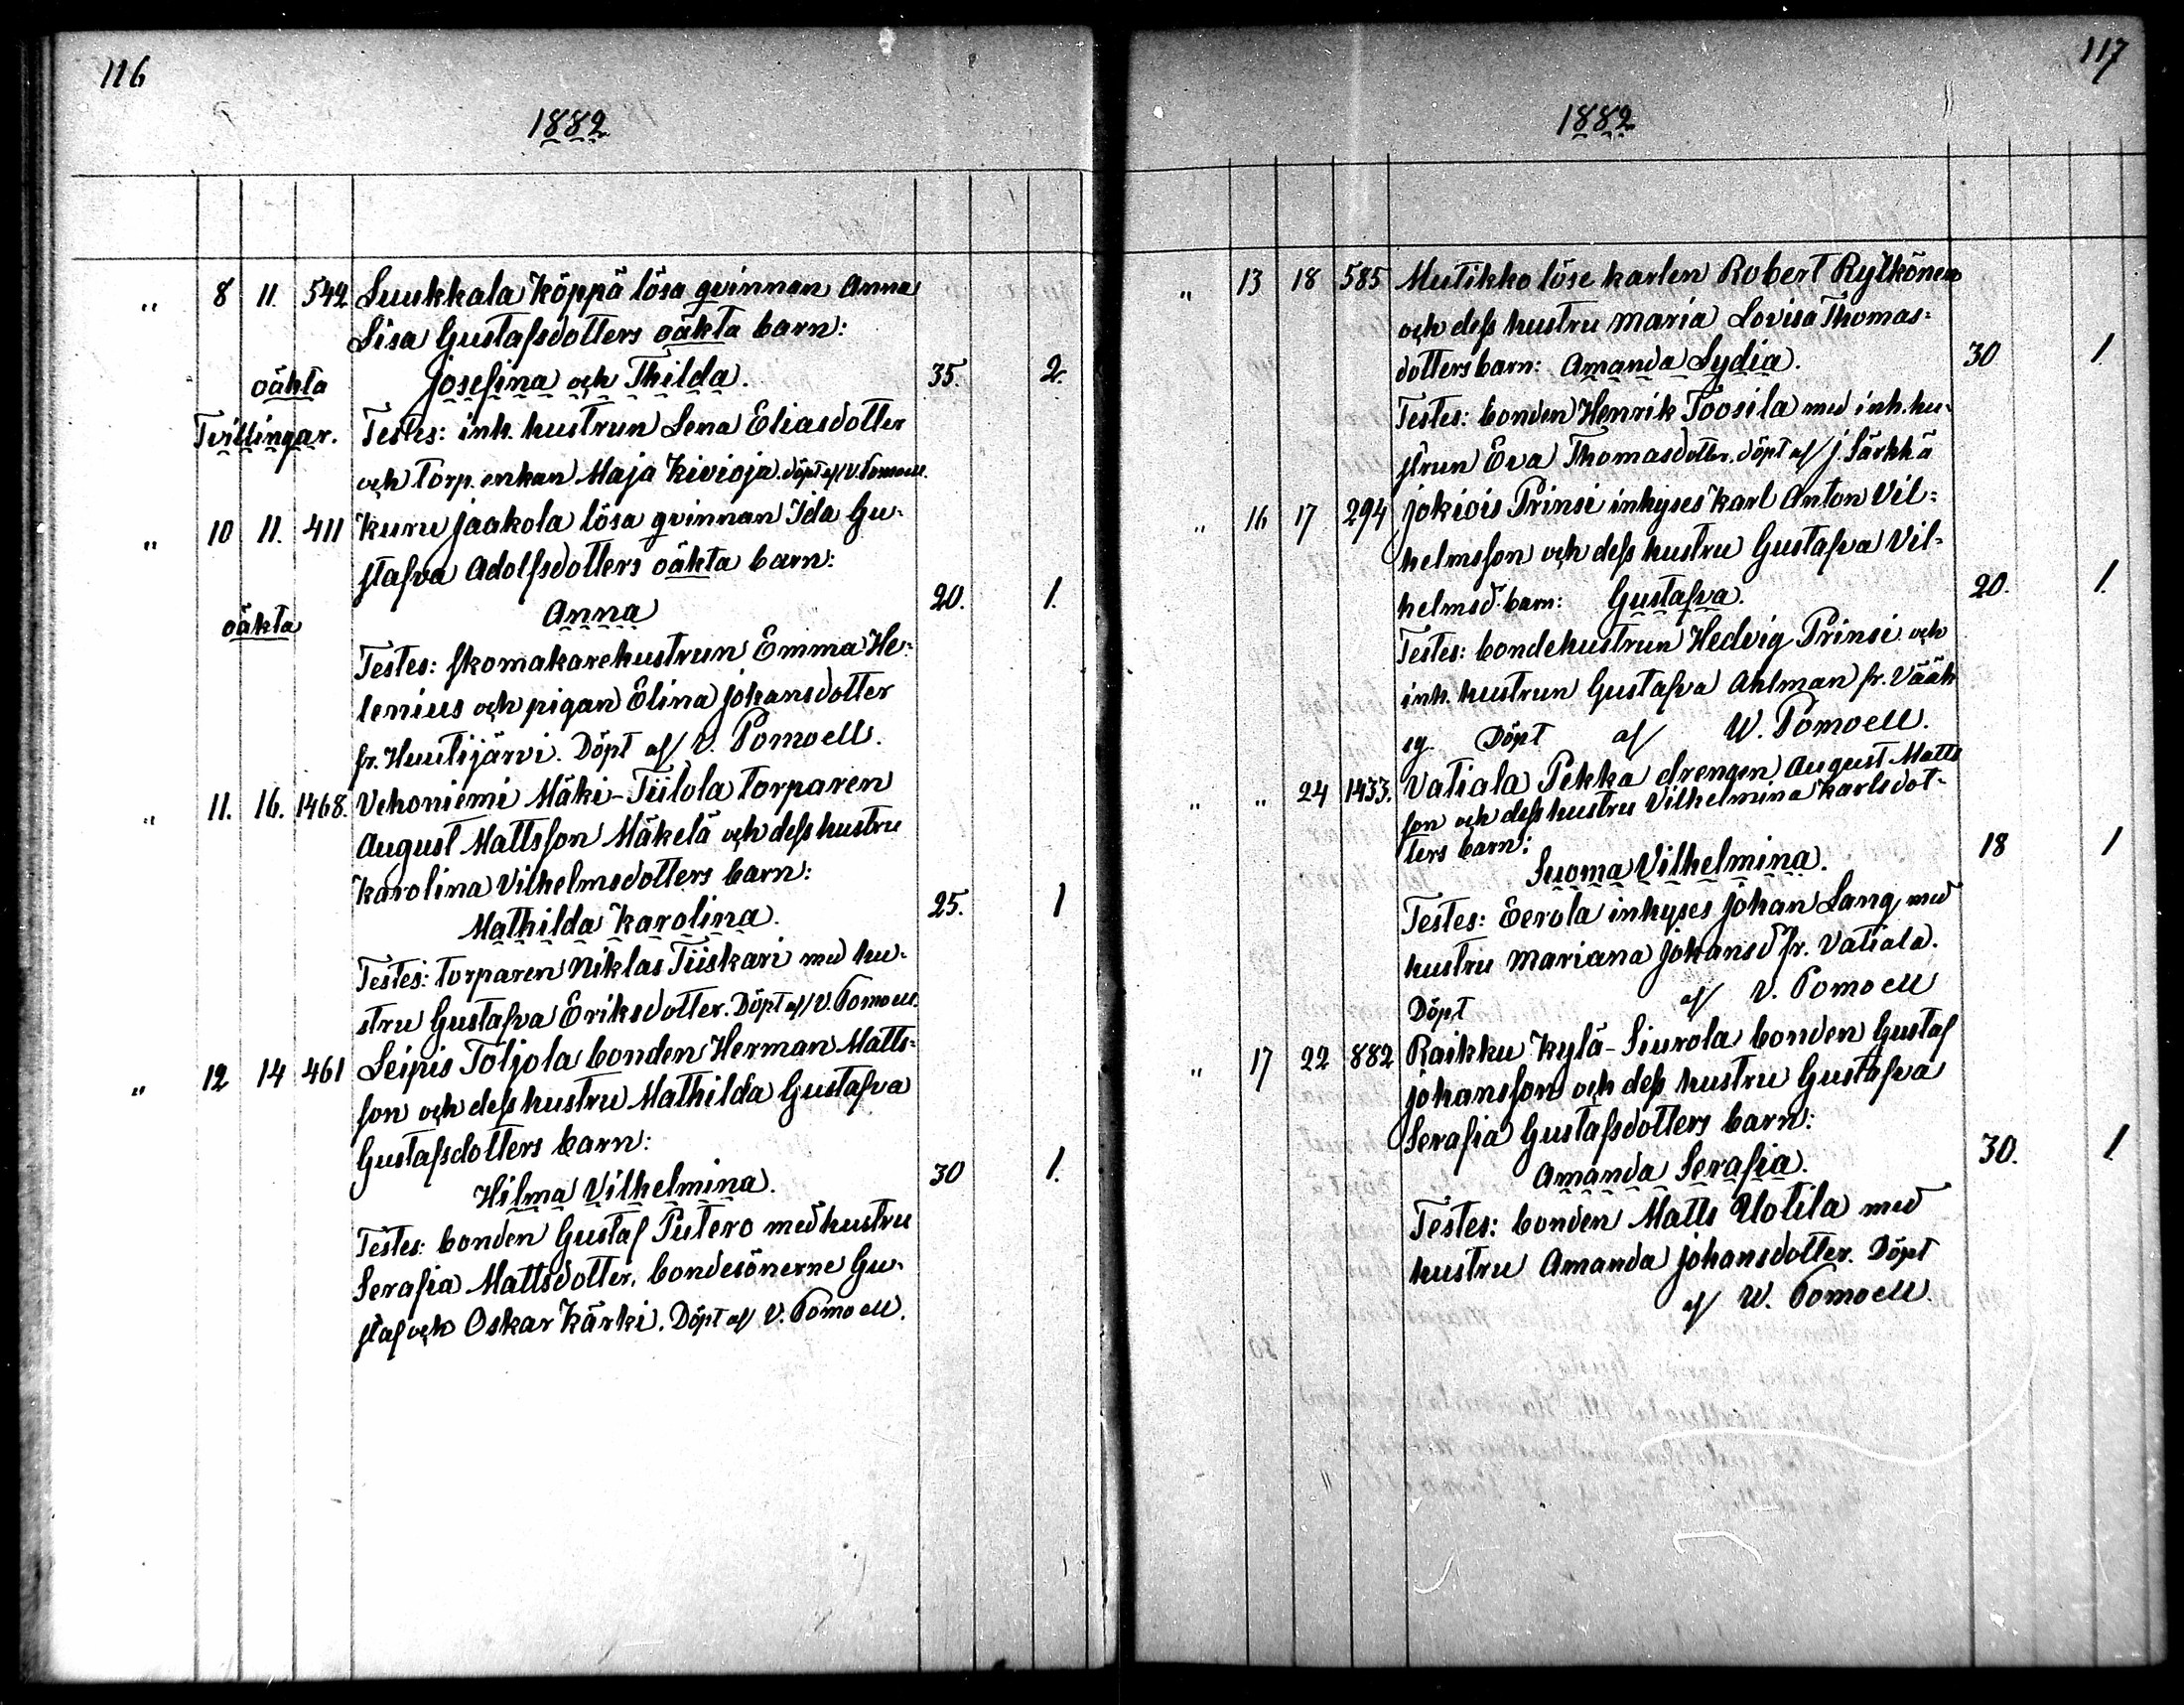 116
1882
„ 8 11. 542 Suukkala Köppä lösa qvinnan Anna
Lisa Gustafsdotters oäkta barn:
oäkta Josefina och Thilda. 35. 2.
Tvillingar. Testes: inh. hustrun Lena Eliasdotter
och torp. enkan Maja Kivioja. Döpt af V. Pomoell.
„ 10 11. 411 Kuru Jaakola lösa qvinnan Ida Gu-
stafva Adolfsdotters oäkta barn:
oäkta Anna 20. 1.
Testes: skomakarehustrun Emma He-
lenius och pigan Elina Johansdotter
fr. Huutijärvi. Döpt af V. Pomoell.
„ 11. 16. 1468. Vehoniemi Mäki-Tiilola torparen
August Mattsson Mäkelä och dess hustru
Karolina Vilhelmsdotters barn:
Mathilda Karolina. 25. 1
Testes: torparen Niklas Tiiskari med hu-
stru Gustafva Eriksdotter. Döpt af V. Pomoell.
„ 12 14 461 Leipis Toljola bonden Herman Matts-
son och dess hustru Mathilda Gustafva
Gustafsdotters barn:
Hilma Vilhelmina. 30 1.
Testes: bonden Gustaf Putero med hustru
Serafia Mattsdotter, bondesönerne Gu-
staf och Oskar Kärki. Döpt af V. Pomoell.
117
1882
„ 13 18 585 Mutikko löse karlen Robert Rytkönen
och dess hustru Maria Lovisa Thomas-
dotters barn: Amanda Lydia. 30 1.
Testes: bonden Henrik Toosila med inh. hu-
strun Eva Thomasdotter. Döpt af J. Särkkä
„ 16 17 294 Jokiois Prinsi inhyses karl Anton Vil-
helmsson och dess hustru Gustafva Vil-
helmsd. barn: Gustafva. 20. 1.
Testes: bondehustrun Hedvig Prinsi och
inh. hustrun Gustafva Ahlman fr. Vääk
sy. Döpt af W. Pomoell.
„ „ 24 1433. Vatiala Pekka drengen August Matts
son och dess hustru Vilhelmina Karlsdot-
ters barn:
Suoma Vilhelmina. 18 1
Testes: Eerola inhyses Johan Lang med
hustru Mariana Johansd fr. Vatiala.
Döpt af V. Pomoell
„ 17 22 882 Raikku Kylä-Siurola bonden Gustaf
Johansson och dess hustru Gustafva
Serafia Gustafsdotters barn:
Amanda Serafia. 30. 1
Testes: bonden Matts Uotila med
hustru Amanda Johansdotter. Döpt
af W. Pomoell.